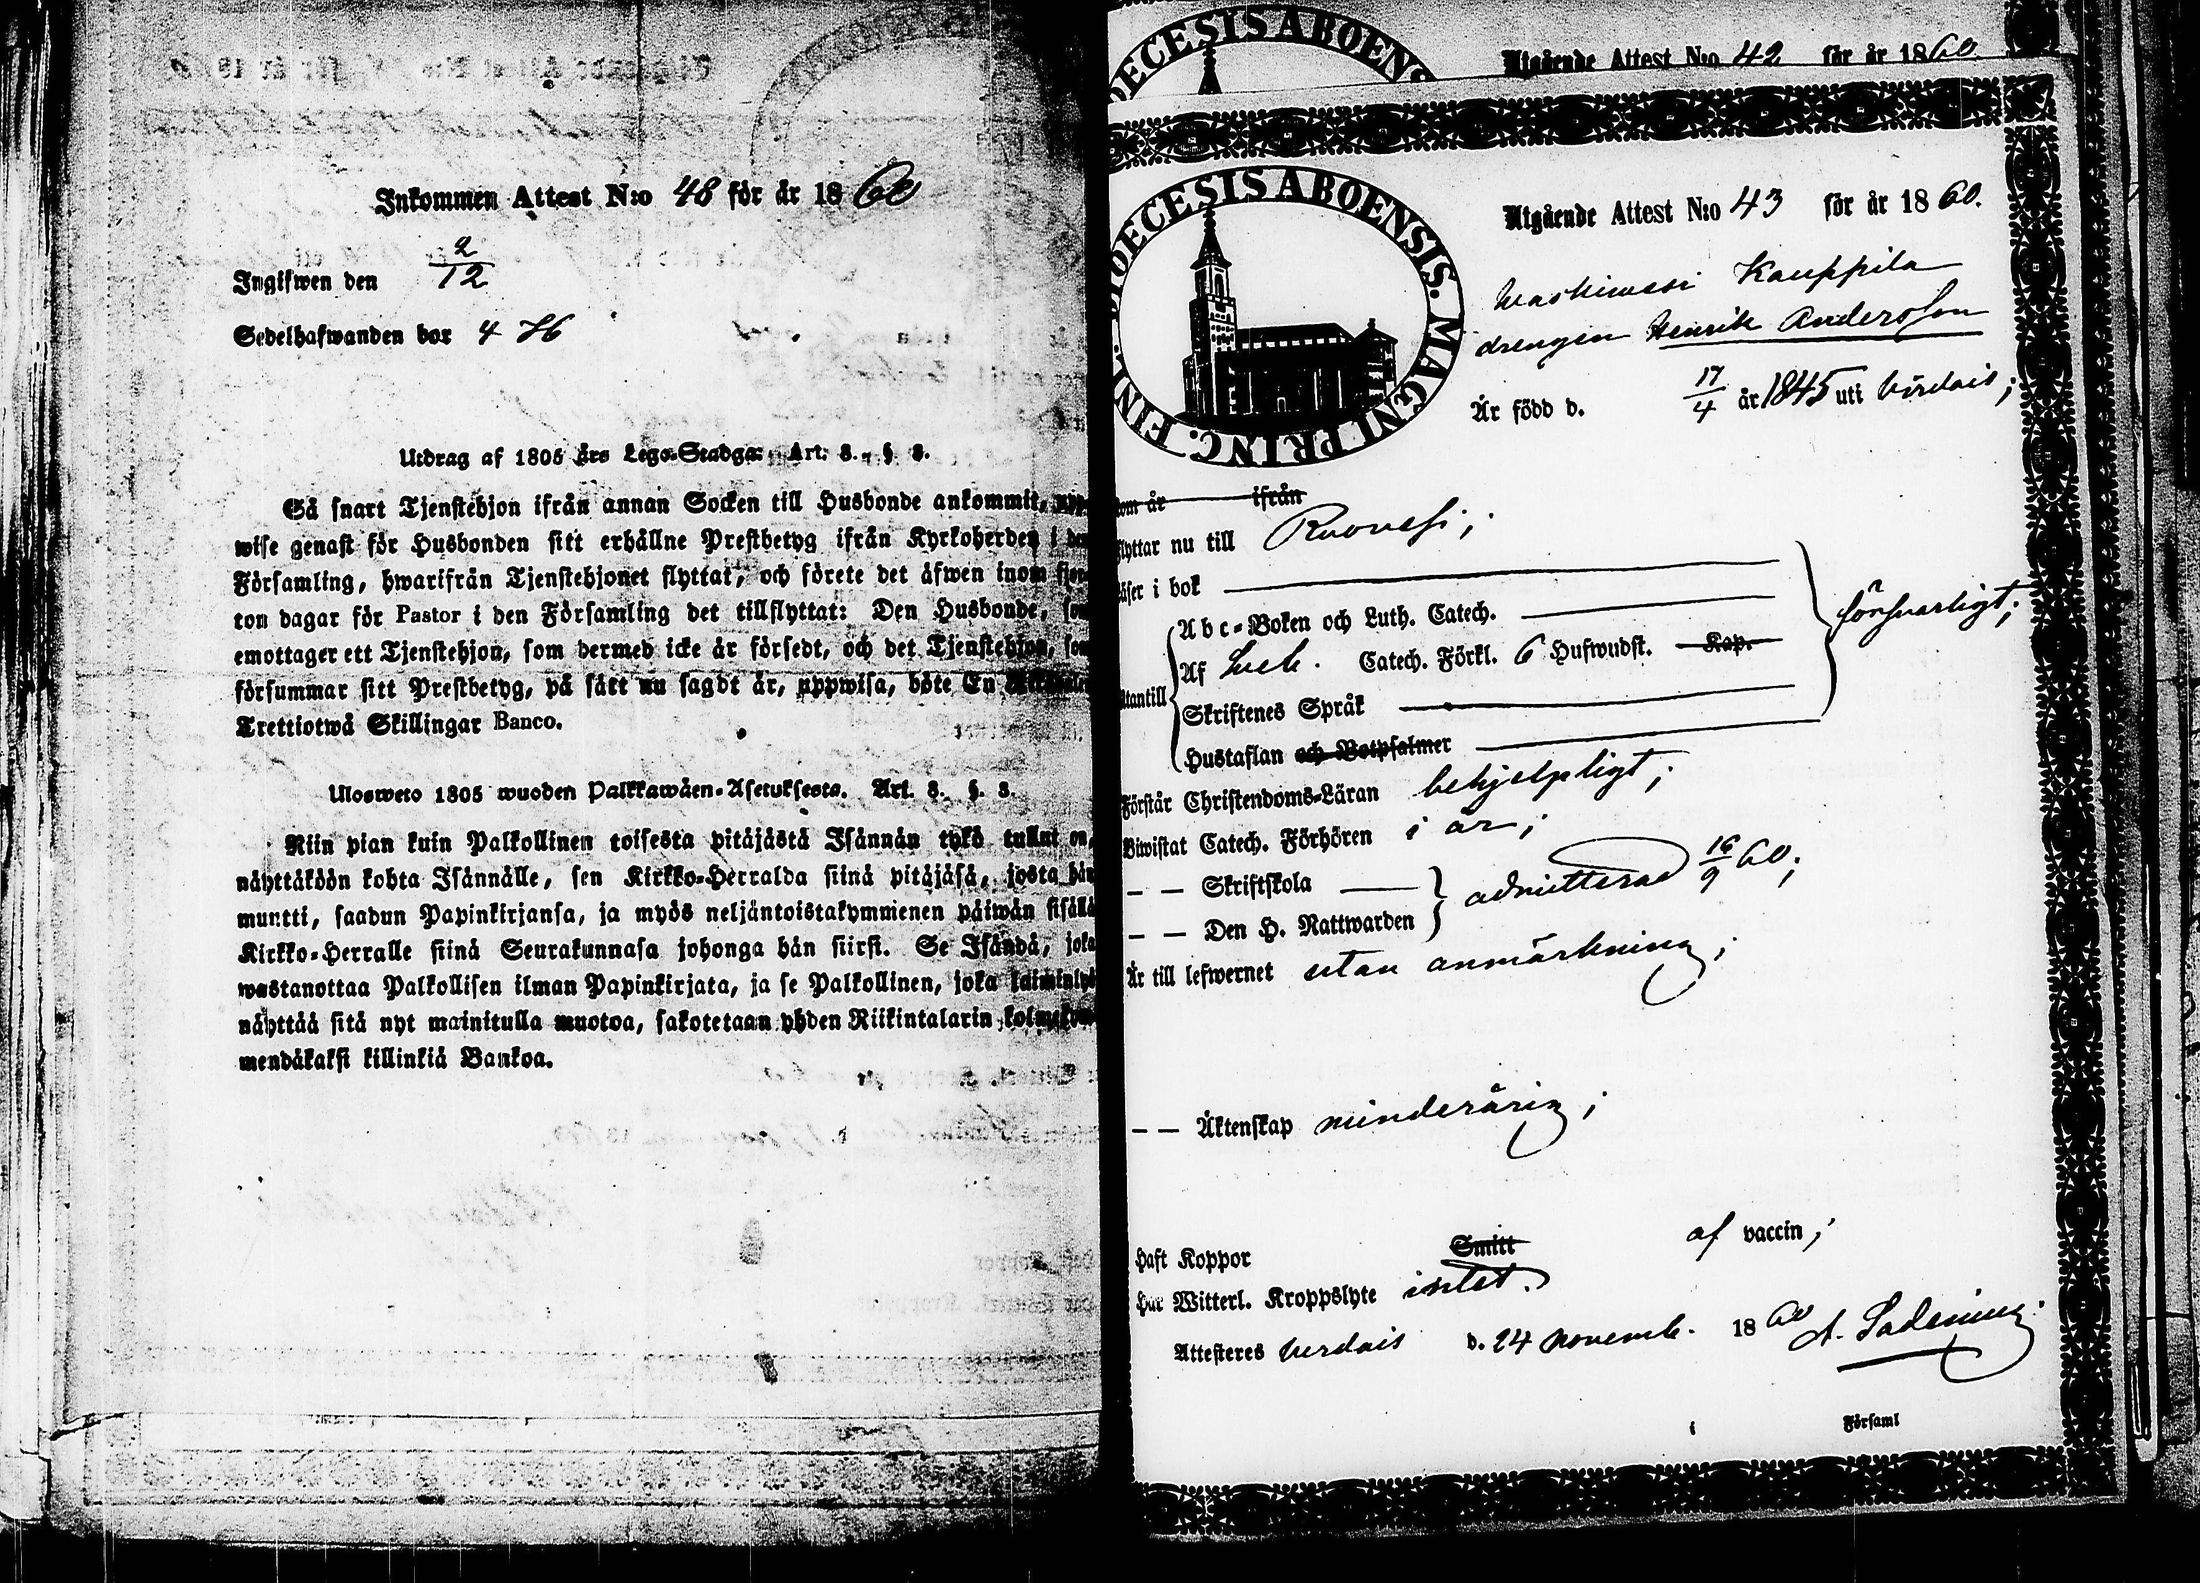 Inkommen Attest N:o 48 för år 1860
Ingifwen den 2/12
Sedelhafwanden bor 4 76
Utdrag af 1805 års Lego-Stadga: Art: 8. § 3.
Så snart Tjenstehjon ifrån annan Socken till Husbonde ankommit, upp-
wise genast för Husbonden sitt erhållne Prestbetyg ifrån Kyrkoherden i den
Församling, hwarifrån Tjenstehjonet flyttat, och förete det äfwen inom fjor-
ton dagar för Pastor i den Församling det tillflyttat: Den Husbonde, som
emottager ett Tjenstehjon, som dermed icke är försedt, och det Tjenstehjon, som
försummar sitt Prestbetyg, på sätt nu sagdt är, uppwisa, böte En
Trettiotwå Skillingar Banco.
Ulosweto 1805 wuoden Palkkawäen-Asetuksesta. Art. 8. §. 3.
Niin pian kuin Palkollinen toisesta pitäjästä Isännän tykö tullut on,
näyttäköön kohta Isännälle, sen Kirkko-Herralda siinä pitäjäsä, josta hän
muutti, saadun Papinkirjansa, ja myös neljäntoistakymmenen päiwän sisällä
Kirkko-Herralle siinä Seurakunnasa johonga hän siirsi. Se Isändä, joka
wastanottaa Palkollisen ilman Papinkirjata, ja se Palkollinen, joka laiminlyö
näyttää sitä nyt mainitulla muotoa, sakotetaan yhden Riikintalarin kolmekym-
mendäkaksi killinkiä Bankoa.
DIOECESIS ABOENSIS
Utgående Attest N:o 42 för år 1860.
DIOECESIS ABOENSIS. MAGNI PRINC. FINL.
Utgående Attest N:o 43 för år 1860.
Waskiwesi Kauppila
drengen Henrik Andersson
Är född d. 17/4 år 1845 uti Virdois;
kom år ifrån
flyttar nu till Ruovesi;
läser i bok
Abc-Boken och Luth. Catech.
utantill Af Sveb. Catech. Förkl. 6 Hufwudst. Kap. försvarligt;
Skriftenes Språk
Hustaflan och Botpsalmer
Förstår Christendoms-Läran behjelpligt;
Biwistat Catech. Förhören i år;
— — Skriftskola
— — Den H. Nattwarden admitterad 16/9 60;
Är till lefwernet utan anmärkning;
— — Äktenskap minderårig;
Haft Koppor Smitt af vaccin;
Har Witterl. Kroppslyte intet.
Attesteres Virdois d. 24 novemb. 1860
Församl